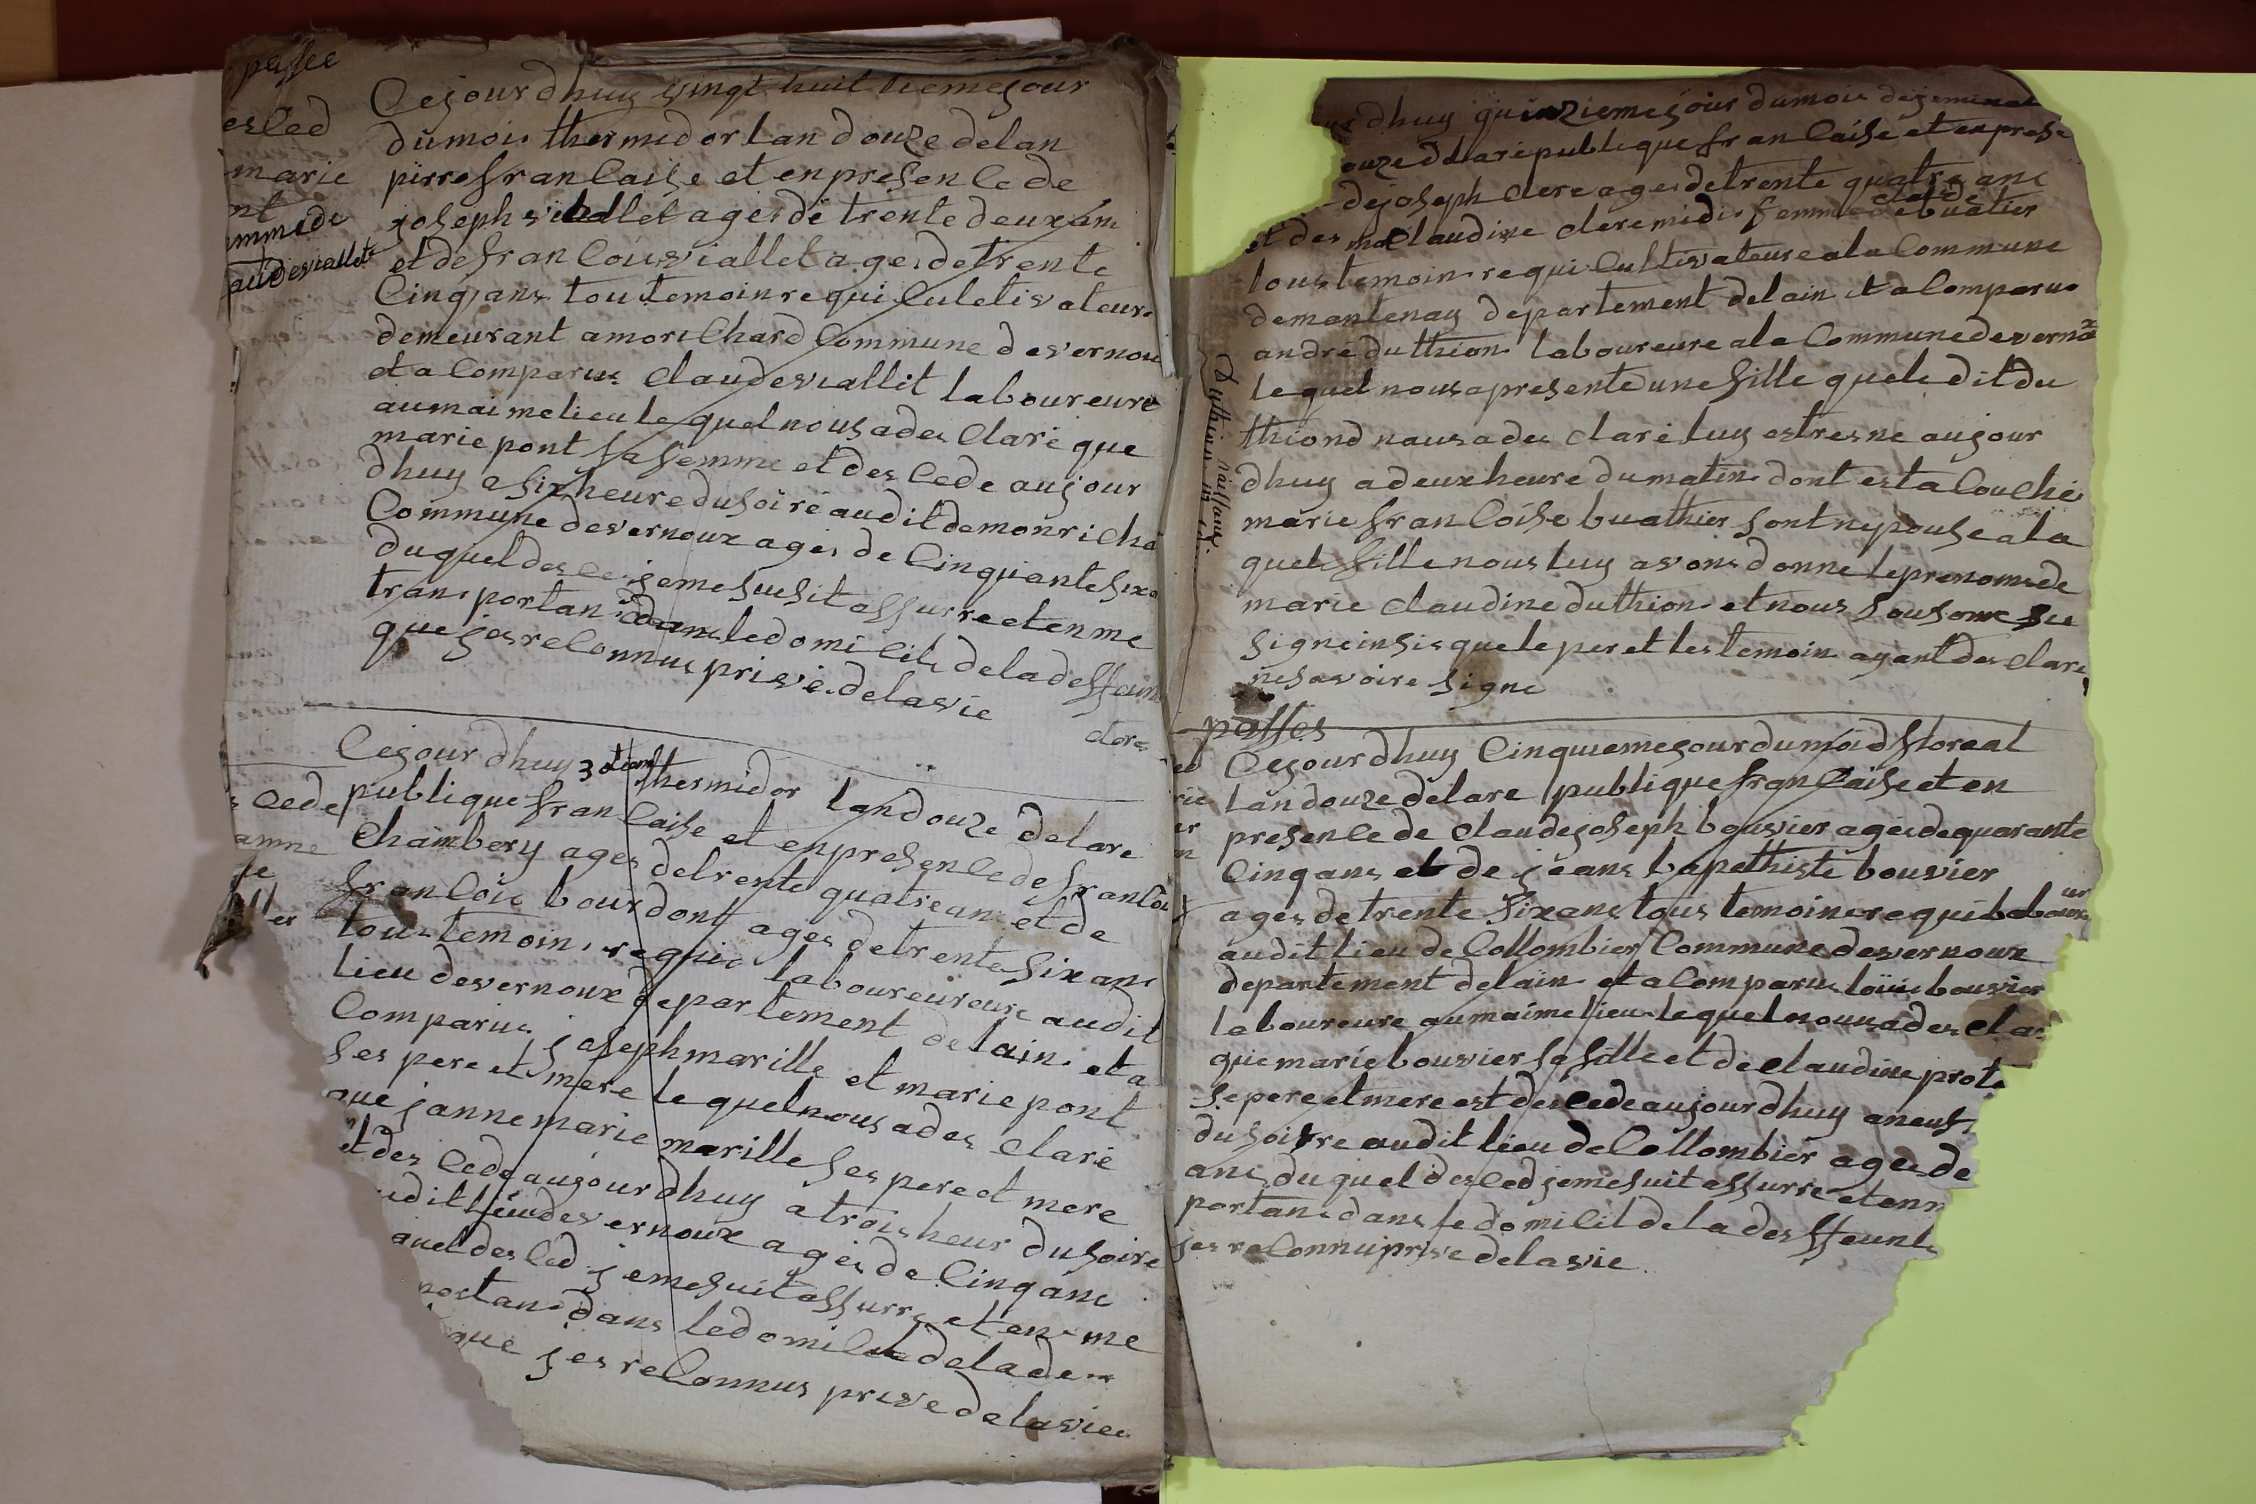 passee
es Ced
marie
nt
mmede
audeviallet
Cejour dhuy vingt huit tiemejour
dumois thermidor lan douze delan
pirre francaise et enpresen Ce de
joseph viallet ages de trente deux anc
et de francois viallet ages de trente
Cinq ans tou temoin requi Culetivateure
demeurant amorichard Commune de vernou
et a Comparue Claude viallit laboureure
aumaime lieu le quel nous a des Claré que
marie pont sa femme et des Cede aujour
dhuy a six heure du soire audit de monricha
Commune de vernoux ages de Cinquante six a
duquel des Ces jeme suhit assurre et en me
tran portan dans le domi Cile de la deffeun
que jes re Connue privé de la vie
clere
Cejour dhuy 30 tiem thermidor lan douze de lare
s Cede
publique fran Caise et enpresen Ce de francoi
amne
Chambery ages de trente quatre anc et de
francois bourdont ages de trente six anc
ller
tou temoin requis laboureureure audit
lieu de vernoux departement de lain et a
Comparue joseph marille et marie pont
ses pere et mere le quel nous a des Claré
que janne marie marille ses pere et mere
et des Cede aujour dhuy a trois heur du soire
udit lieu de vernoux ages de Cinq anc
quel des Ced jeme suit assurre et en me
portan dans le domi Cile de la de
que jes re Connus privé de la vie
dhuy quinzieme jour du mois de jeminal
ouze d lare publique fran Caise et en prese
de joseph clere ages de trente quatre anc
et des ma Claudine clere midi femme de Claude buatier
tous temoin requi Cultivateure a la Commune
de mantenay departement de lain et a Comparue
andre duthion laboureure a la Commune de vernox
le quel nous a presente une fille que le dit du
thiond nous a des claré luy estres ne aujour
dhuy a deux heure du matin dont est a Couché
marie fran Coise buathier sont nepouse a la
quele fille nous luy avons donne le prenom de
marie Claudine duthion et nous sousome su
signe insis que le per et les temoin ayant des clare
ne savoire signe
naissance
passes
Cejour dhuy Cinquieme jour du moid floreal
lan douze de lare publique fran Caise et en
presen Ce de Claude joseph bouvier ages de quarante
Cinq ans et de jeans bapethiste bouvier
ages de trente six anc tous temoin requi laboureur
audit lieu de Collombier Commune de vernoux
departement de lain et a Comparue louis bouvier
laboureure au maime lieu le quel nous a des cla
que marie bouvier sa fille et de Claudine prot
se pere et mere est des Cede aujour dhuy a neuf
du soirre audit lieu de Collombier ages de
anc du quel des Ced jeme suit assurre et enn
portan dans le domi Cil de la deffeunt
jes re Connu prive de la vie